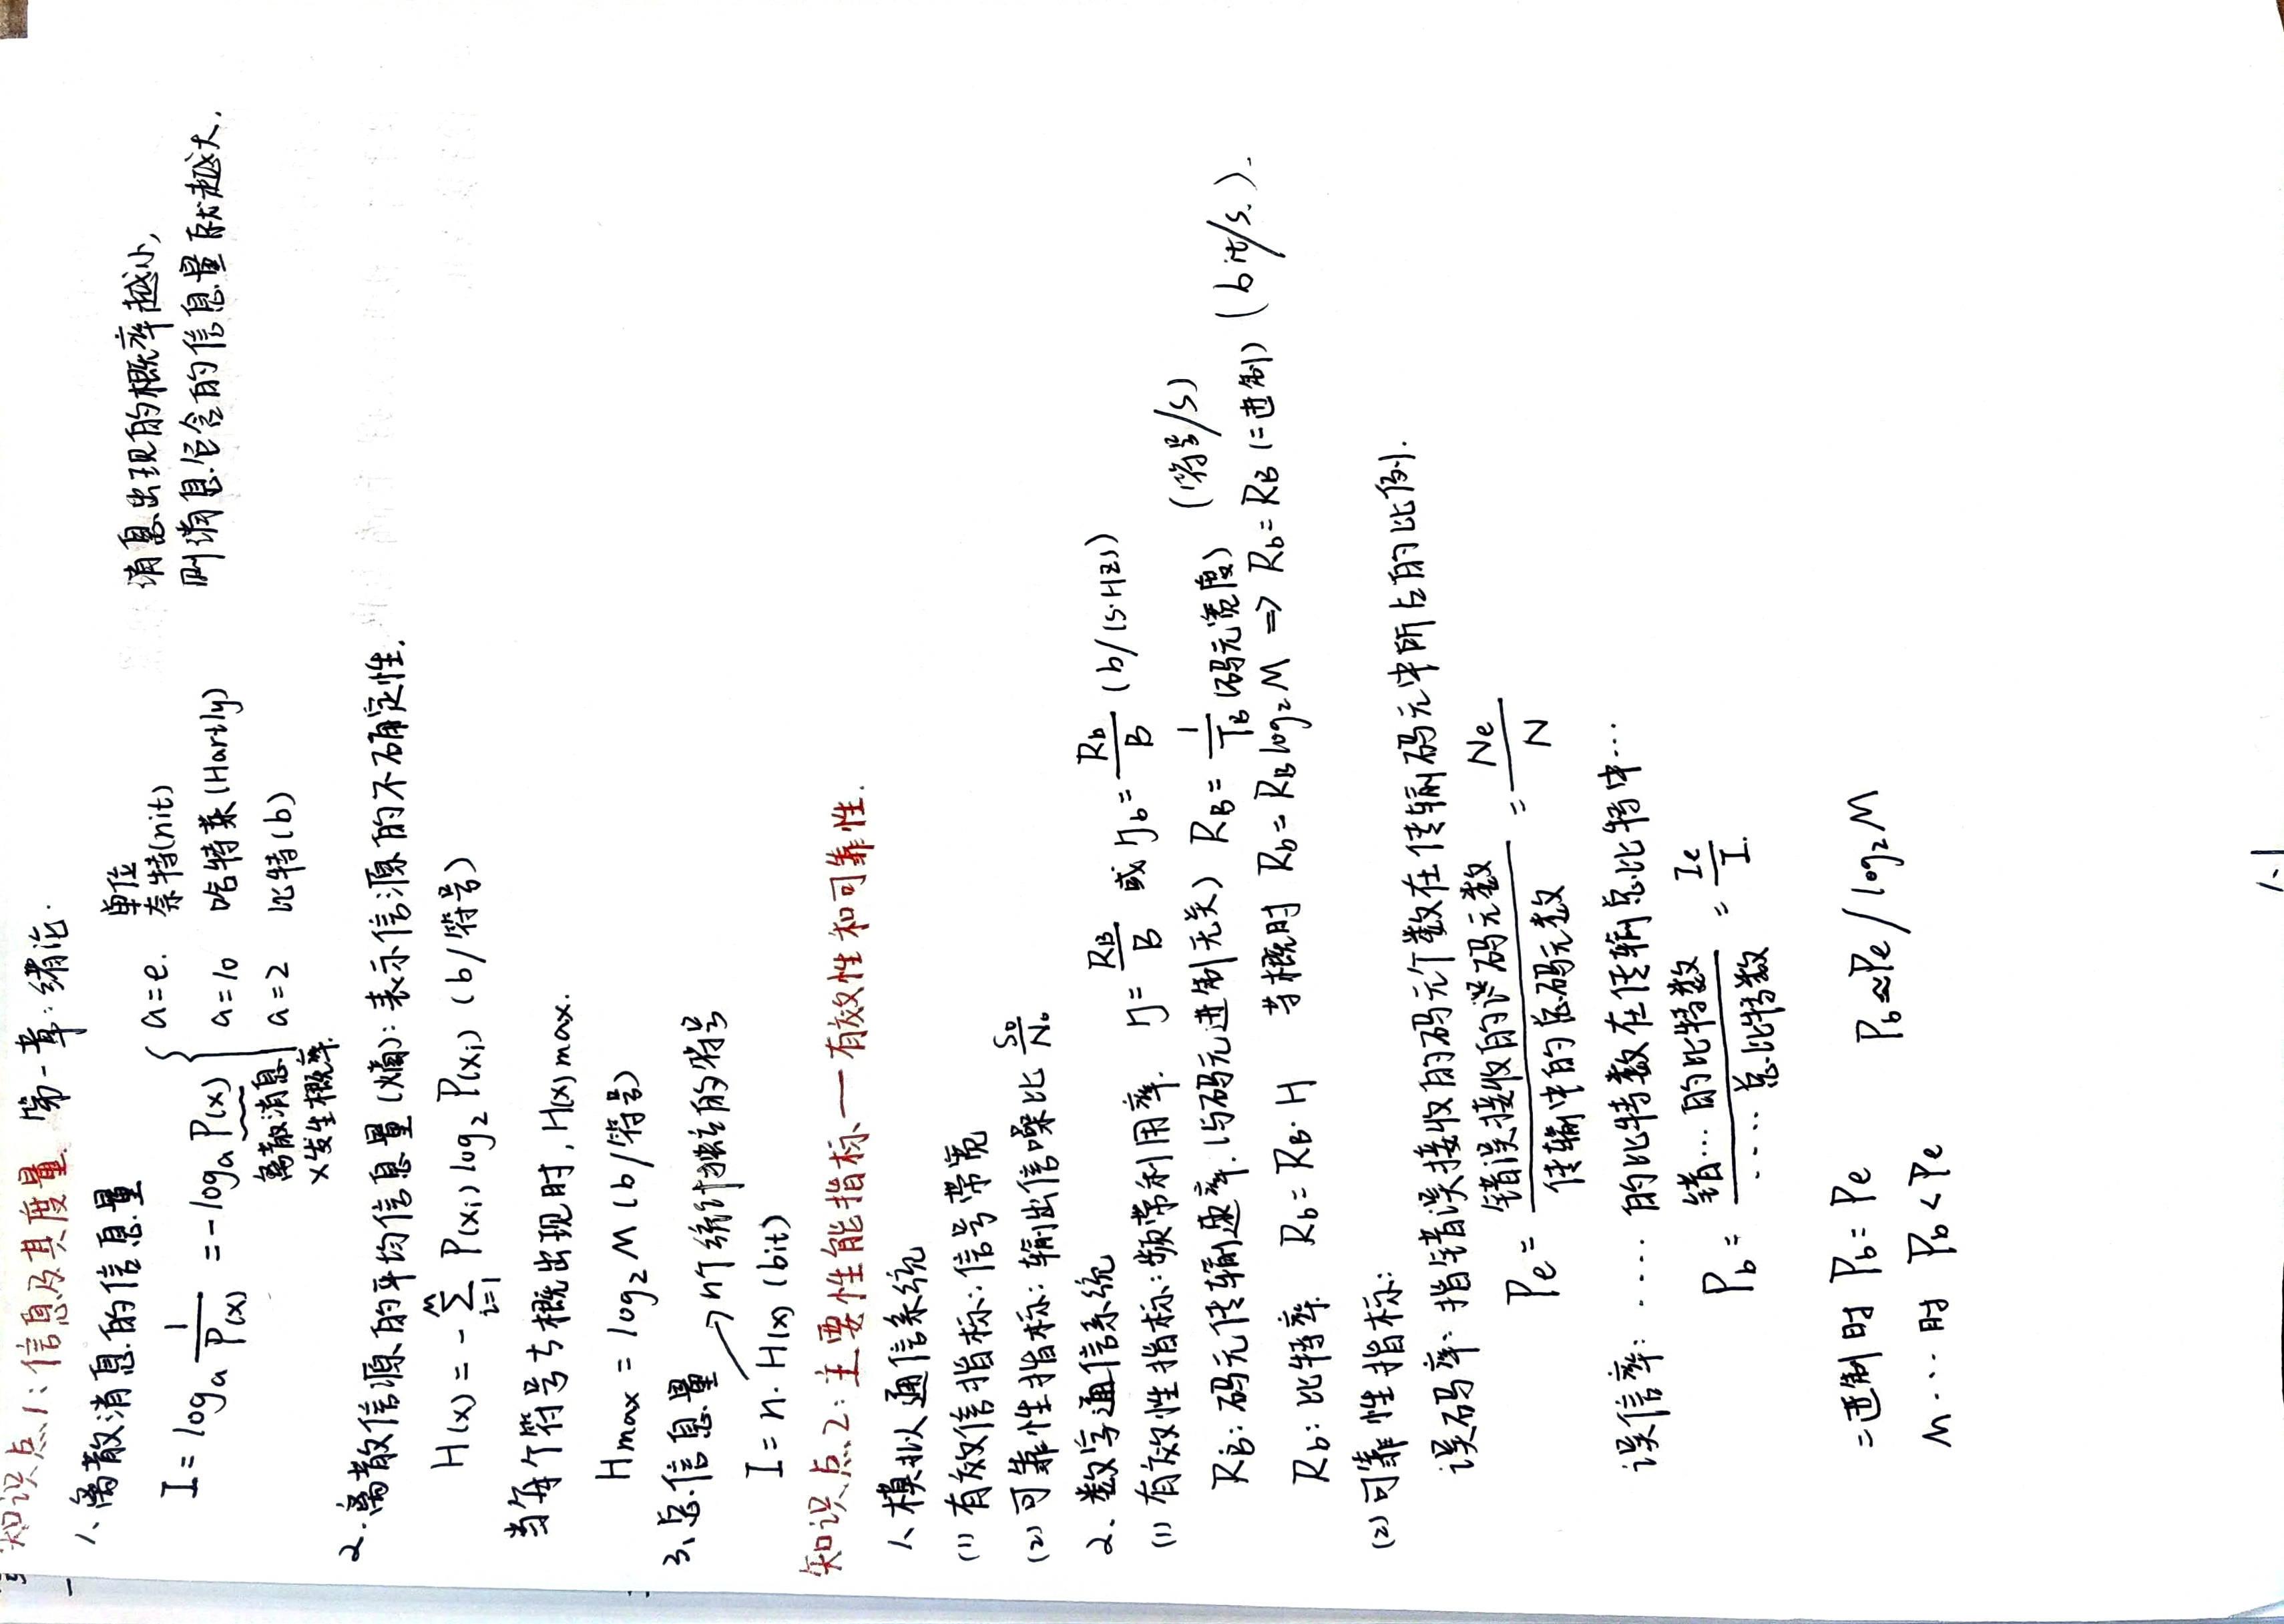 知识点1:信息及其度量. 第一章:绪论.
1、离散消息的信息量
单位
I = log_a 1/P(x) = -log_a P(x) { a=e. 奈特(nit)
a=10 哈特莱(Hartly)
a=2 比特(b)
离散消息
x发生概率.
消息出现的概率越小,
则消息包含的信息量就越大.
2.离散信源的平均信息量(熵):表示信源的不确定性.
H(x) = -∑_{i=1}^{M} P(xi) log₂ P(xi) (b/符号)
当每个符号等概出现时, H(x) max.
Hmax = log₂ M (b/符号)
3、总信息量
→ n个统计独立的符号
I = n. H(x) (bit)
知识点2:主要性能指标—有效性和可靠性.
1、模拟通信系统
(1) 有效信指标:信号带宽
(2) 可靠性指标:输出信噪比 So/No
2、数字通信系统
(1) 有效性指标:频带利用率. η = RB/B 或 ηb = Rb/B (b/(s·Hz))
RB: 码元传输速率.(与码元进制无关) RB = 1/TB (码元宽度) (符号/s)
Rb: 比特率. Rb = RB· H 等概时 Rb = RB log₂ M ⇒ Rb = RB (二进制) (bit/s.).
(2) 可靠性指标:
误码率:指错误接收的码元个数在传输码元中所占的比例.
Pe = 错误接收的误码元数/传输中的总码元数 = Ne/N
误信率: .... 的比特数在传输总比特中...
Pb = 错... 的比特数/.... 总比特数 = Ie/I.
二进制时 Pb = Pe Pb ≈ Pe / log₂ M
M ... 时 Pb < Pe
1-1